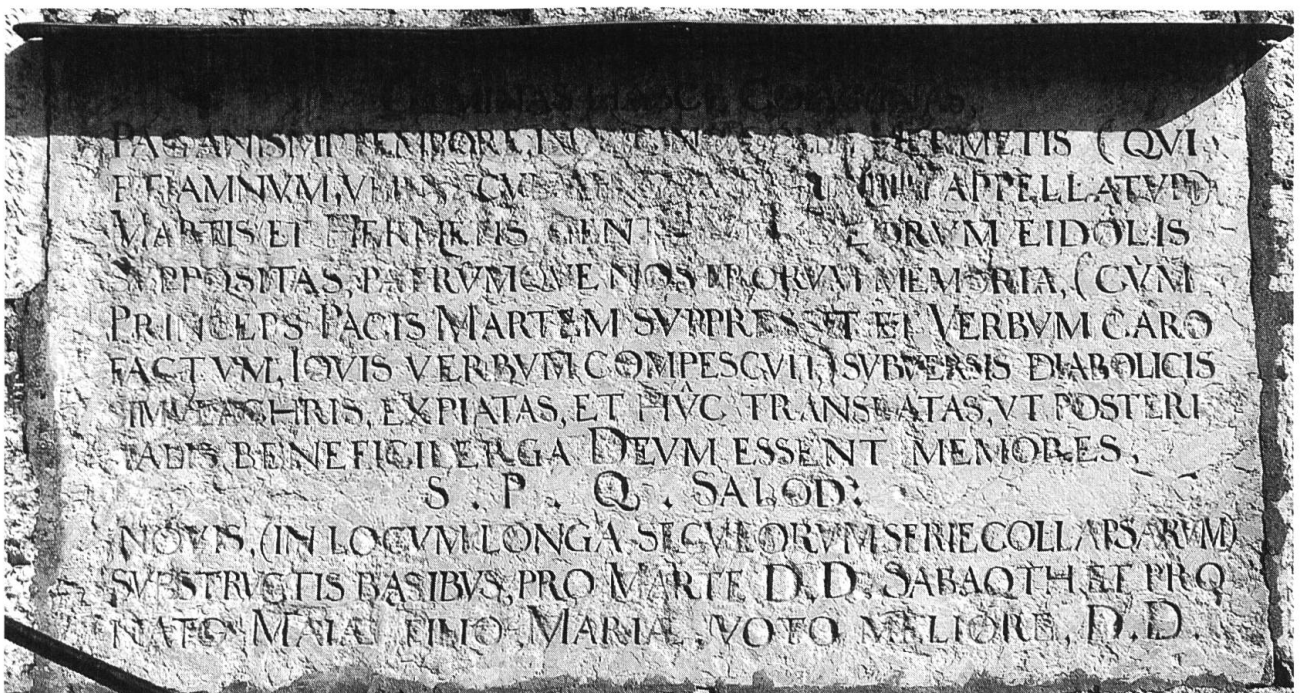 GEMINAS HASCE COLVMNAS,
PAGANISMI TEMPORE, IN HERMETIS (QVI
ETIAMNVM, APPELLATVR)
MARTIS ET HERMETIS GENTILIVM EIDOLIS
SVPPOSITAS, PATRVMQVE NOSTRORVM MEMORIA, (CVM
PRINCEPS PACIS MARTEM SVPPRESSIT ET VERBVM CARO
FACTVM, IOVIS VERBVM COMPESCVIT,) SVBVERSIS DIABOLICIS
SIMVLACHRIS, EXPIATAS, ET HVC TRANSLATAS, VT POSTERI
TATIS BENEFICII ERGA DEVM ESSENT MEMORES,
S . P . Q . SALOD:
NOVIS, (IN LOCVM LONGA SECVLORVM SERIE COLLAPSARVM)
SVBSTRVCTIS BASIBVS, PRO MARTE D.D. SABAOTH, ET PRO
NATO MAIÆ FILIO MARIÆ, VOTO MELIORE, D.D.